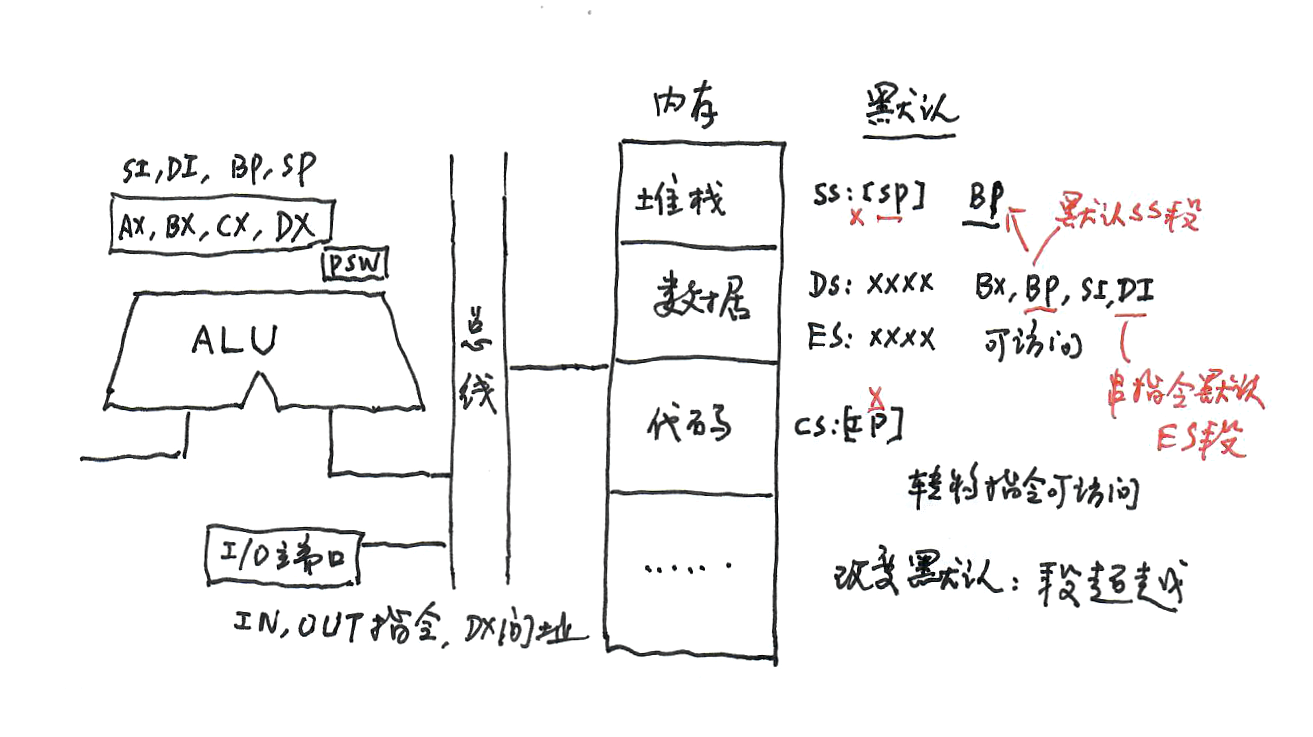 内存
默认
SI,DI, BP,SP
AX, BX, CX, DX
PSW
ALU
总线
I/O端口
IN,OUT指令, DX间址
堆栈
数据
代码
......
SS:[SP] BP
X
默认SS段
DS: XXXX BX, BP, SI, DI
ES: XXXX 可访问
串指令默认
ES段
X
CS:[IP]
转移指令可访问
改变默认: 段超越